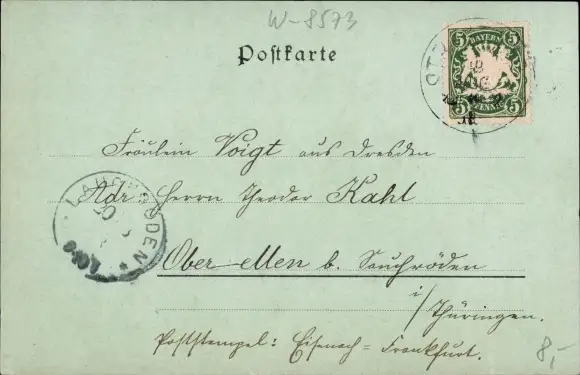 W-8573
Postkarte
5 BAYERN 5
5 PFENNIG 5
Fräulein Voigt aus Dresden
Adr. Herrn Theodor Kahl
LAUCHRÖDEN
Ober-Ellen b. Lauchröden
i/Thüringen.
Poststempel: Eisenach=Frankfurt.
8,-